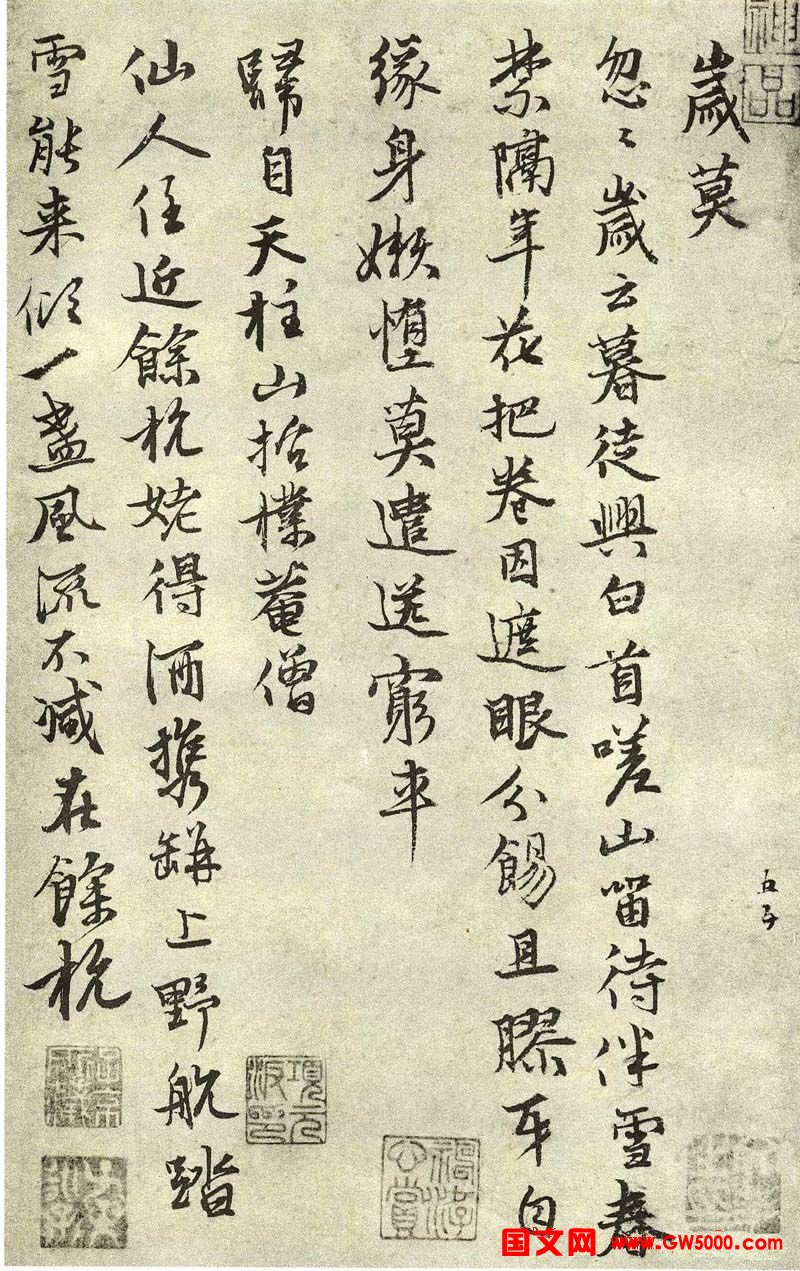 歲莫
忽〻歲云暮徒興白首嗟山留待伴雪春
禁隔年花把卷因遮眼分餳且膠牙自
緣身嬾惰莫遣送窮車
歸自天柱山拾樸菴僧
仙人住近餘杭姥得酒攜缾上野航踏
雪能来傾一盞風流不減在餘杭
五予
神品
項元汴印
國文网 www.GW5000.com